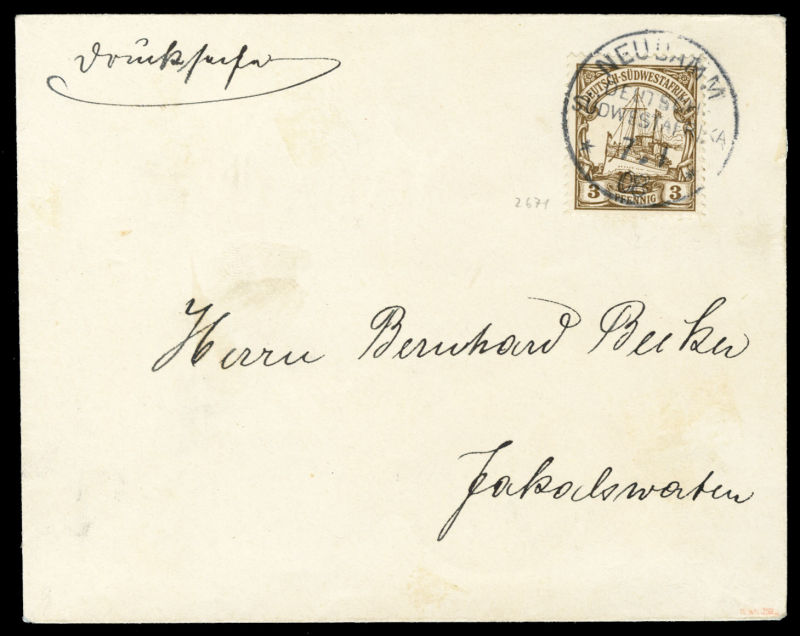 Drucksache
NEUDAMM
DEUTSCH-SÜDWESTAFRIKA
7. 1
08
3 PFENNIG 3
2671
Herrn Bernhard Becker
Jakalswater